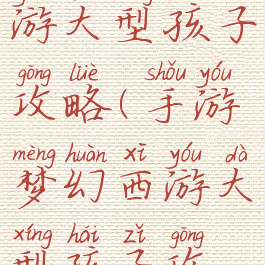 游大型孩子
gōng lüè shǒu yóu
攻略(手游
mèng huàn xī yóu dà
梦幻西游大
xíng hái zǐ gōng
型孩子攻